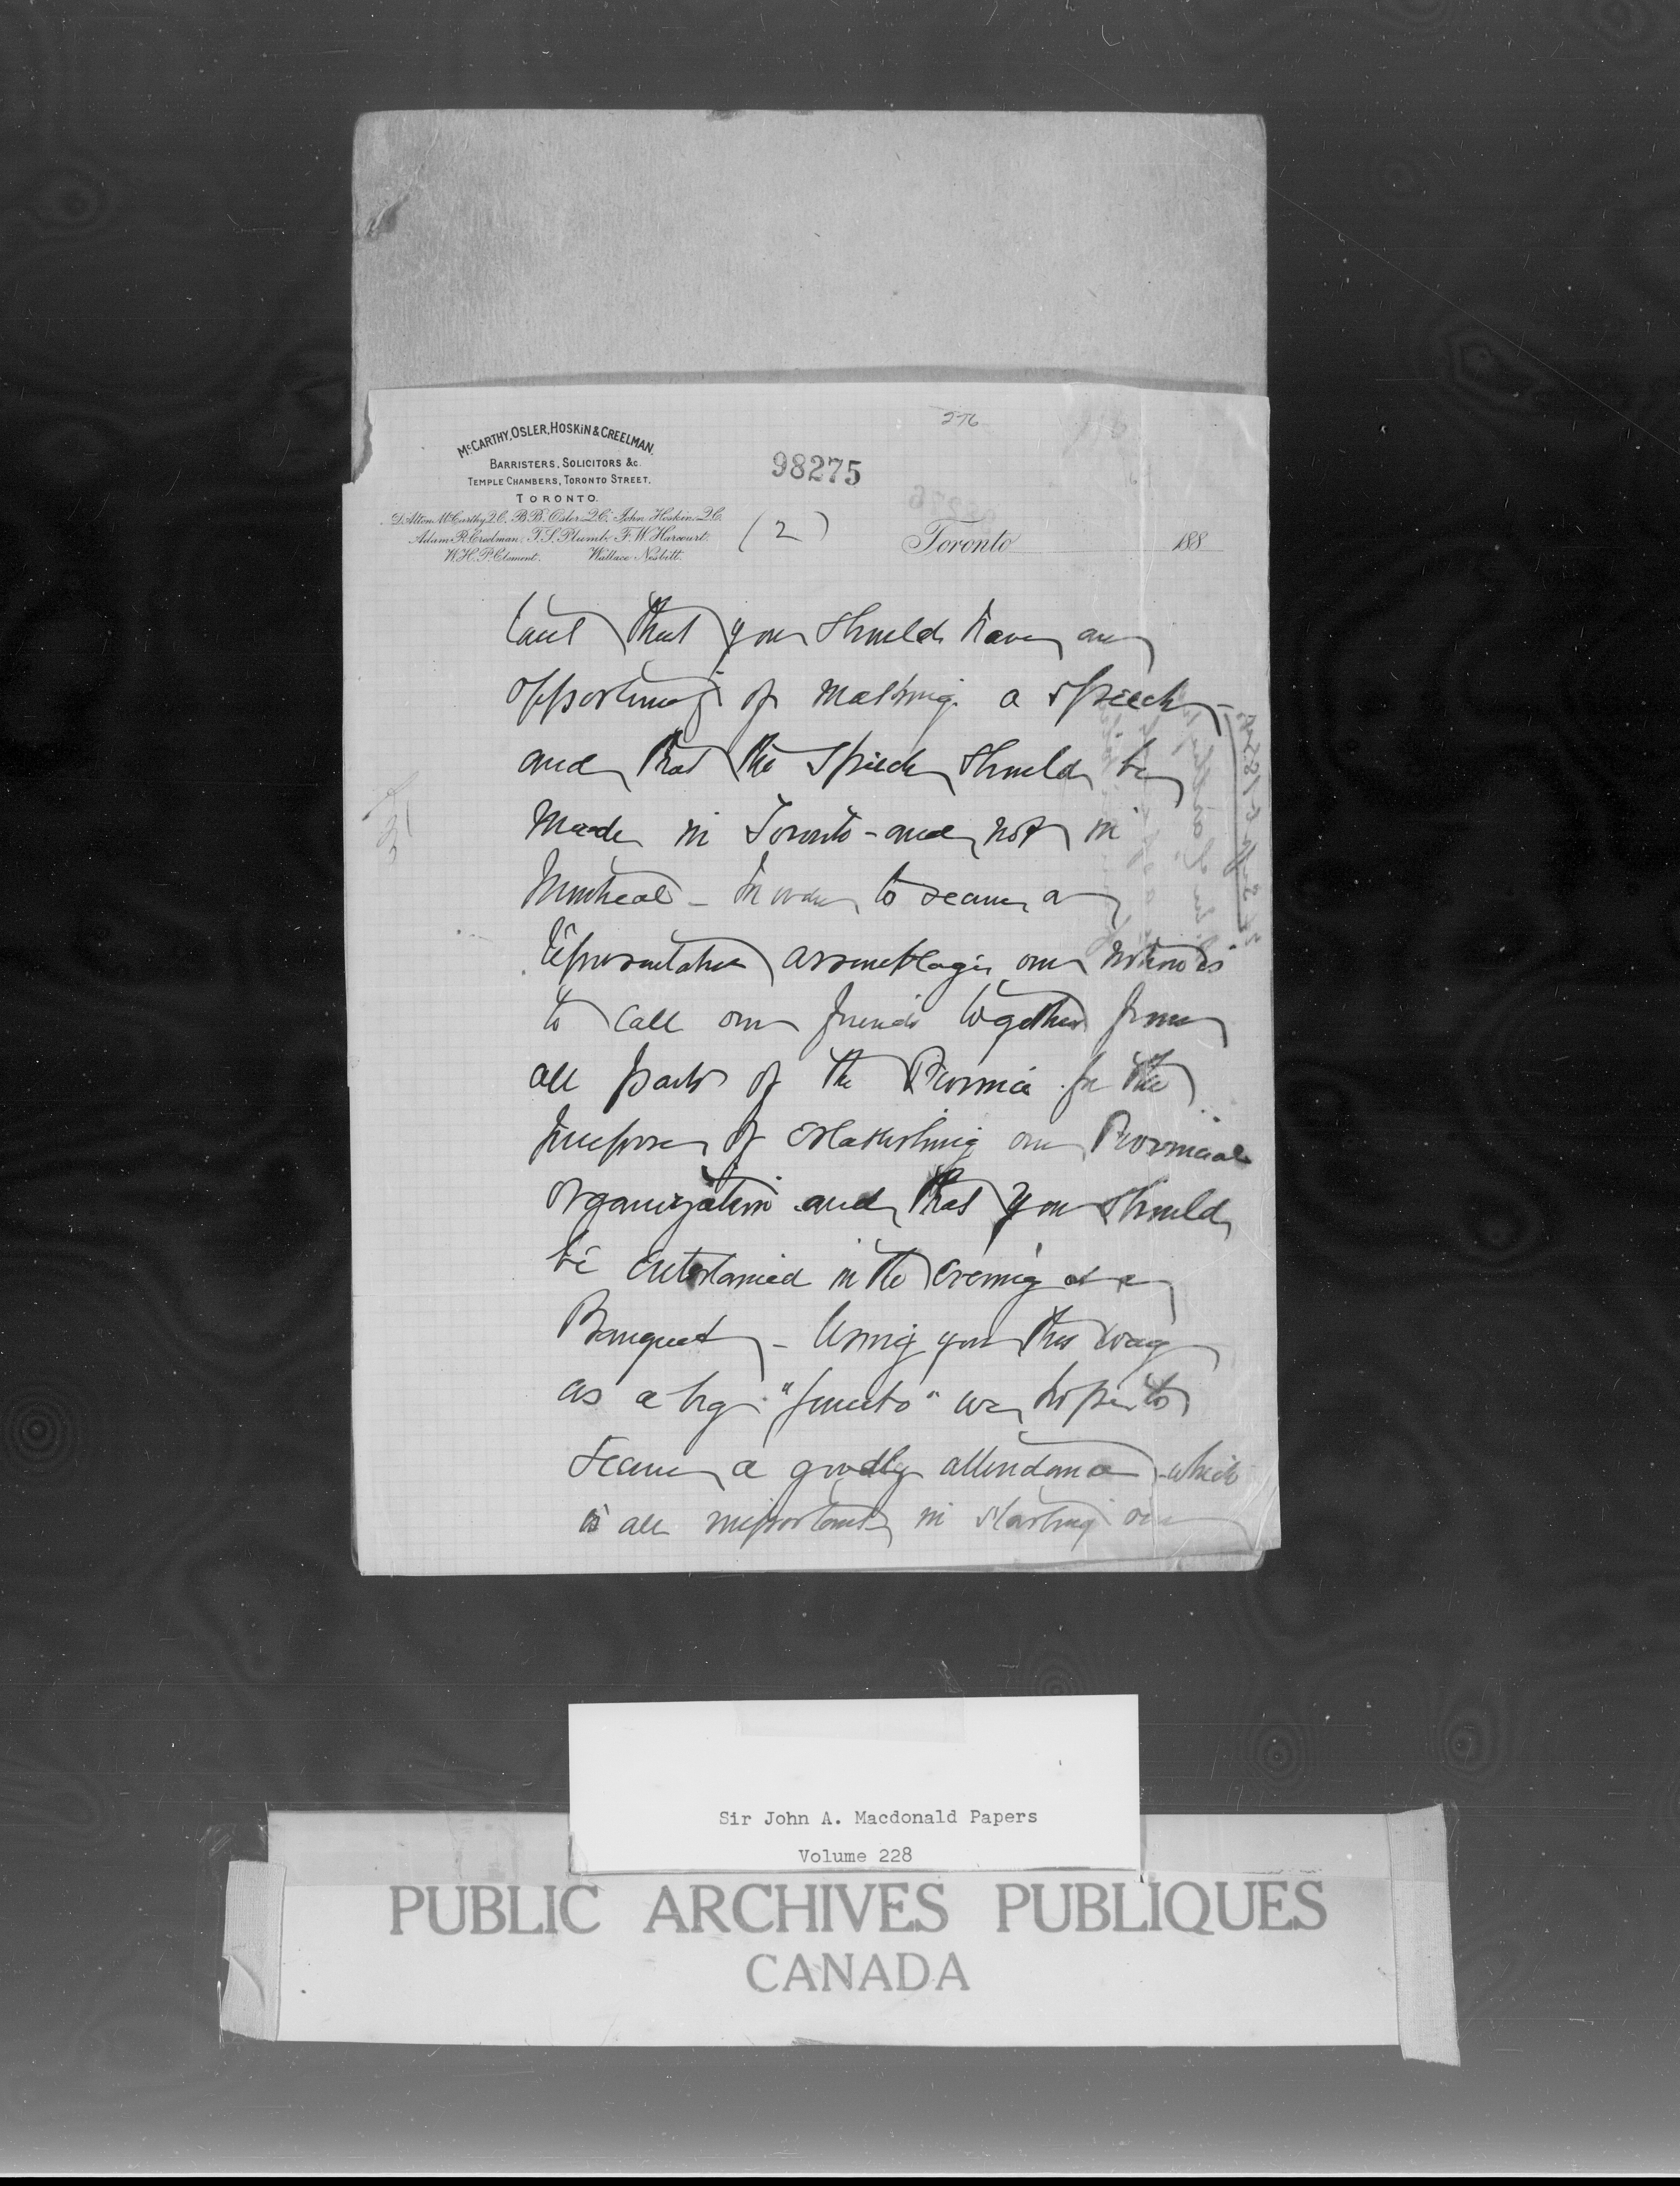 276
McCARTHY, OSLER, HOSKIN & CREELMAN,
BARRISTERS, SOLICITORS &c.
TEMPLE CHAMBERS, TORONTO STREET,
TORONTO.
98275
D'Alton McCarthy, Q.C. B.B. Osler, Q.C. John Hoskin, Q.C.
Adam R. Creelman. T.S. Plumb. F.W. Harcourt.
W.H.P. Clement. Wallace Nesbitt.
(2)
Toronto 188
tant that you should have an
opportunity of making a speech -
and that the speech should be
made in Toronto - and not in
Montreal - In order to secure a
representative assemblage our notion is
to call our friends together from
all parts of the Province for the
purpose of establishing our Provincial
organization and that you should
be entertained in the evening at a
Banquet - Using you this way
as a big we hope to
secure a goodly attendance - which
is all important in starting our
Sir John A. Macdonald Papers
Volume 228
PUBLIC ARCHIVES PUBLIQUES
CANADA